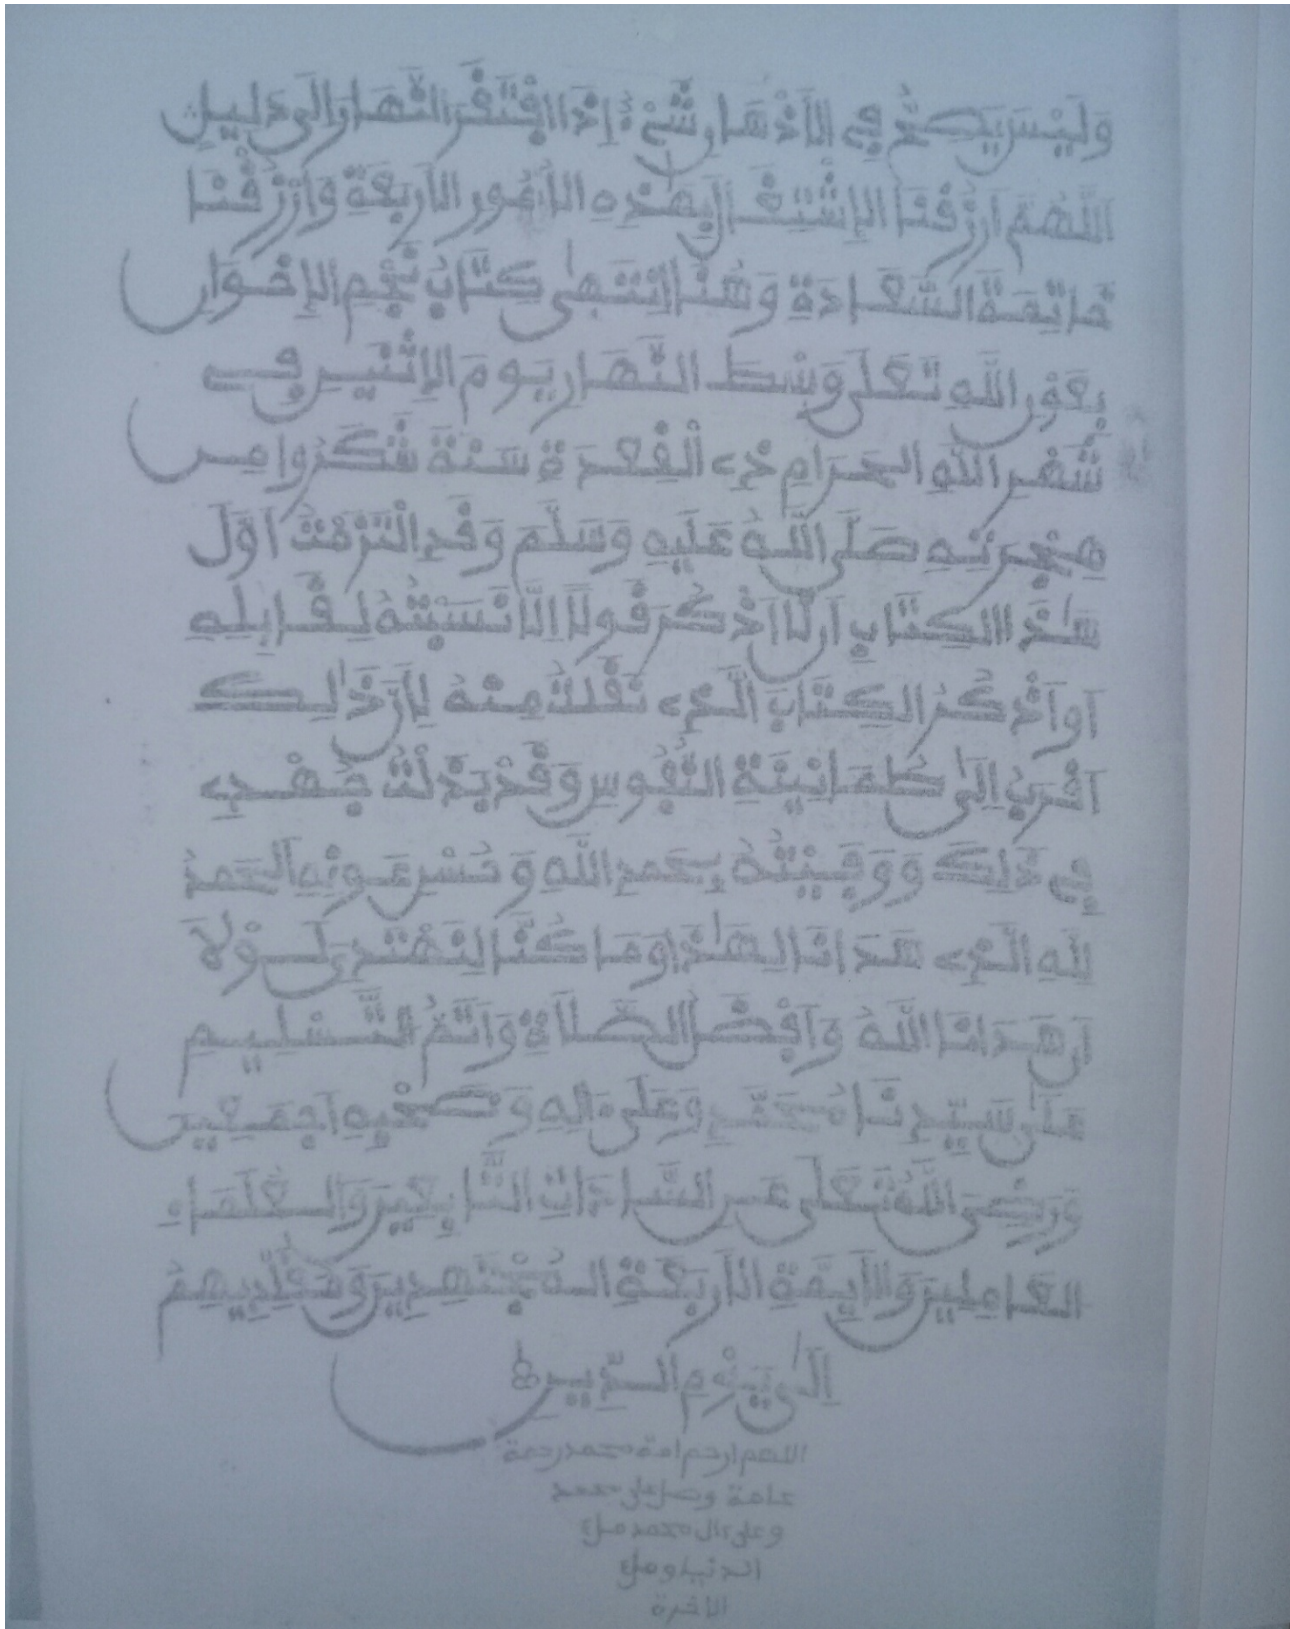 وَلَيْسَ يَصِحُّ فِي الَاذْهَانِ شَيْءٌ إِذَا افْتَقَرَ النَّهَارُ إِلَى دَلِيلِ
اللَّهُمَ ارْزُقْنَا الِاشْتِغَالَ بِهَٰذِهِ الُامُورِ الَارْبَعَةِ وَارْزُقْنَا
خَاتِمَةَ السَّعَادَةِ وَهُنَا انْتَهَىٰ كِتَابُ نَجْمِ الِاخْوَانِ
بِعَوْنِ اللَّهِ تَعَلَى وَسْطَ النَّهَارِ يَوْمَ الِاثْنَيْنِ فِي
شَهْرِ اللَّهِ الحَرَامِ ذِي الْقِعْدَةِ سَنَةَ شَكَرُوا مِن
هِجْرَتِهِ صَلَى اللَّهُ عَلَيهِ وَسَلَّمَ وَقَدِ الْتَزَمْتُ اَوَّلَ
هَٰذَا الكِتَابِ اَن لَّا اَذْكُرَ قَولًا اِلَّا نَسَبْتُهُ لِقَائِلِهِ
اَو اَذْكُرُ الكِتَابَ الَّذِي نَقَلْتُ مِنْهُ لِاَنَّ ذَٰلِكَ
اَقْرَبُ اِلَىٰ طُمَانِينَةِ النُّفُوسِ وَقَدْ بَذَلْتُ جُهْدِي
فِي ذَلِكَ وَوَفَيْتُهُ بِحَمدِ اللَّهِ وَحُسْنِ عَونِهِ اَلحَمدُ
لِلهِ الَّذِي هَدَانَا لِهَٰذَا وَمَا كُنَّا لِنَهْتَدِيَ لَوْلَا
اَن هَدَانَا اللَّهُ وَاَفْضَلُ الصَّلَاةِ وَاَتَمُّ التَّسْلِيمِ
عَلَىٰ سَيِّدِنَا مُحَمَّدٍ وَعَلَى ءَالِهِ وَصَحْبِهِ اَجمَعِين
وَرَضِيَ اللَّهُ تَعَلَى عَنِ السَّادَاتِ التَّابِعِينَ وَالعُلَمَاءِ
العَامِلِينَ وَالَايِمَّةِ الَارْبَعَةِ المُجْتَهِدِينَ وَمُقَلِّدِيهِمُ
اِلَىٰ يَوْمِ الدِّينِ
اللهم ارحم امة محمد رحمة
عامة وصل على محمد
وعلى ءال محمد مل
الدنيا ومل
الاخرة